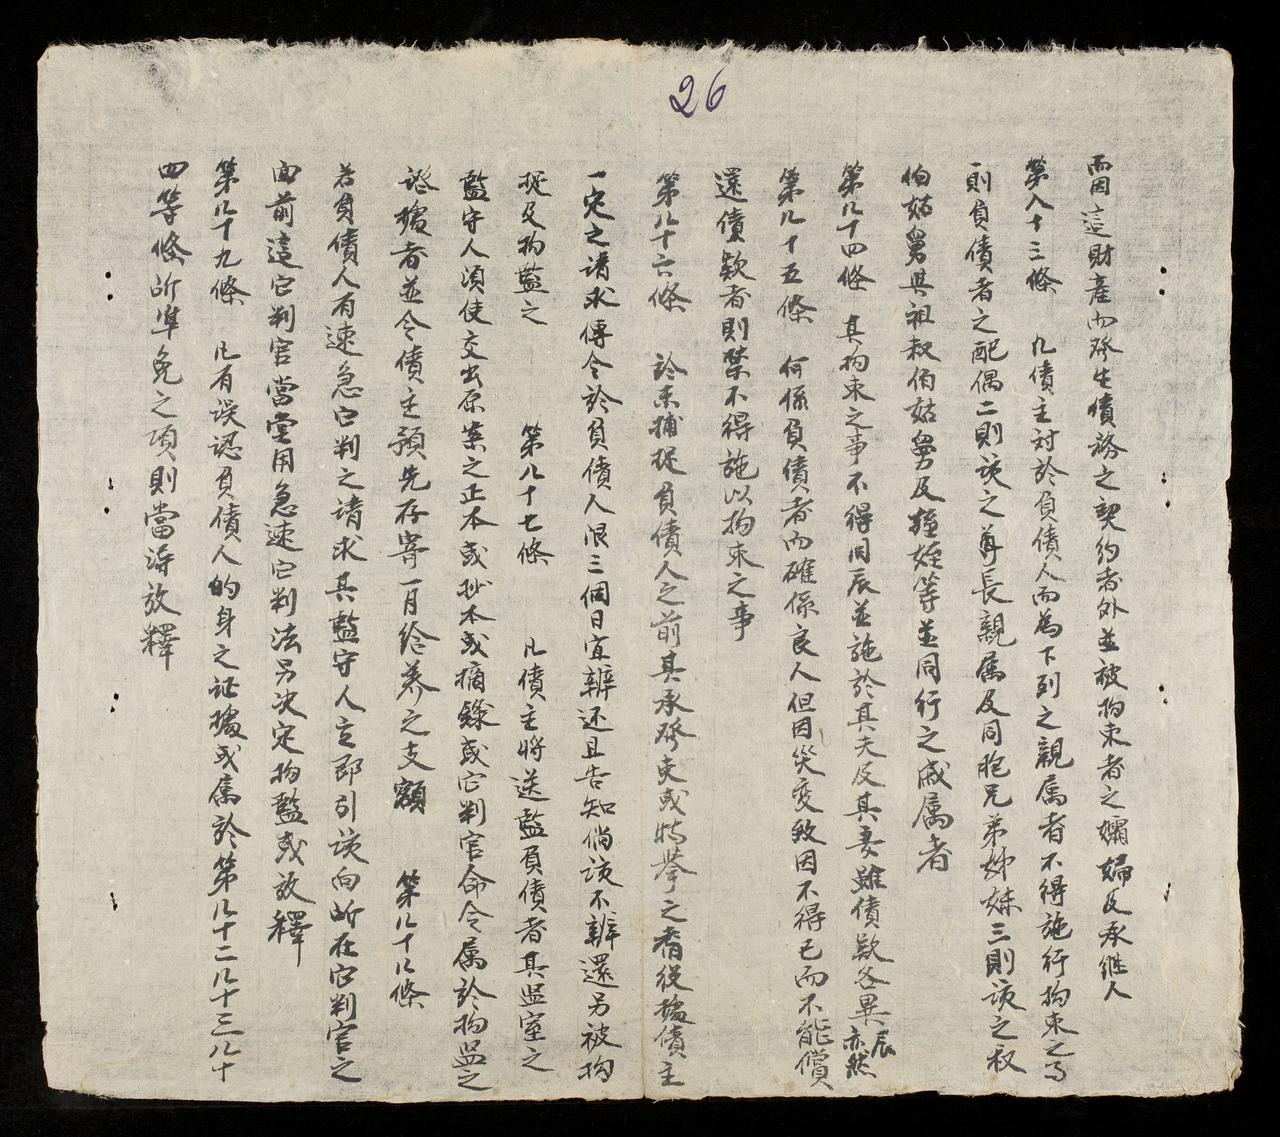 26
而因這財產而發生債務之契約者外並被拘束者之孀婦及承繼人
第八十三條 凡債主討於負債人而為下列之親属者不得施行拘束之事
一則負債者之配偶二則该之尊長親属及同胞兄弟姊妹三則该之叔
伯姑舅與祖叔伯姑舅及姪等並同行之戚属者
第八十四條 其拘束之事不得同辰並施於其夫及其妻雖債欵各異辰亦然
第八十五條 何係負債者而確係良人但因災变致因不得已而不能償
還債欵者則禁不得施以拘束之事
第八十六條 於未捕捉負債人之前其承發吏或特舉之者役據債主
一定之請求傳令於負債人限三個日宜辦还且告知倘该不辦還另被拘
捉及拘監之 第八十七條 凡債主將送監負債者其监室之
監守人須使交出原案之正本或抄本或摘錄或它判官命令属於拘监之
證據者並令債主預先存寄一月給养之支額 第八十八條
若負債人有速急它判之請求其監守人立即引该向所在它判官之
面前這它判官當堂用急速它判法另决定拘監或放釋
第八十九條 凡有误認負債人的身之证據或属於第八十二八十三八十
四等條所準免之項則當淂放釋